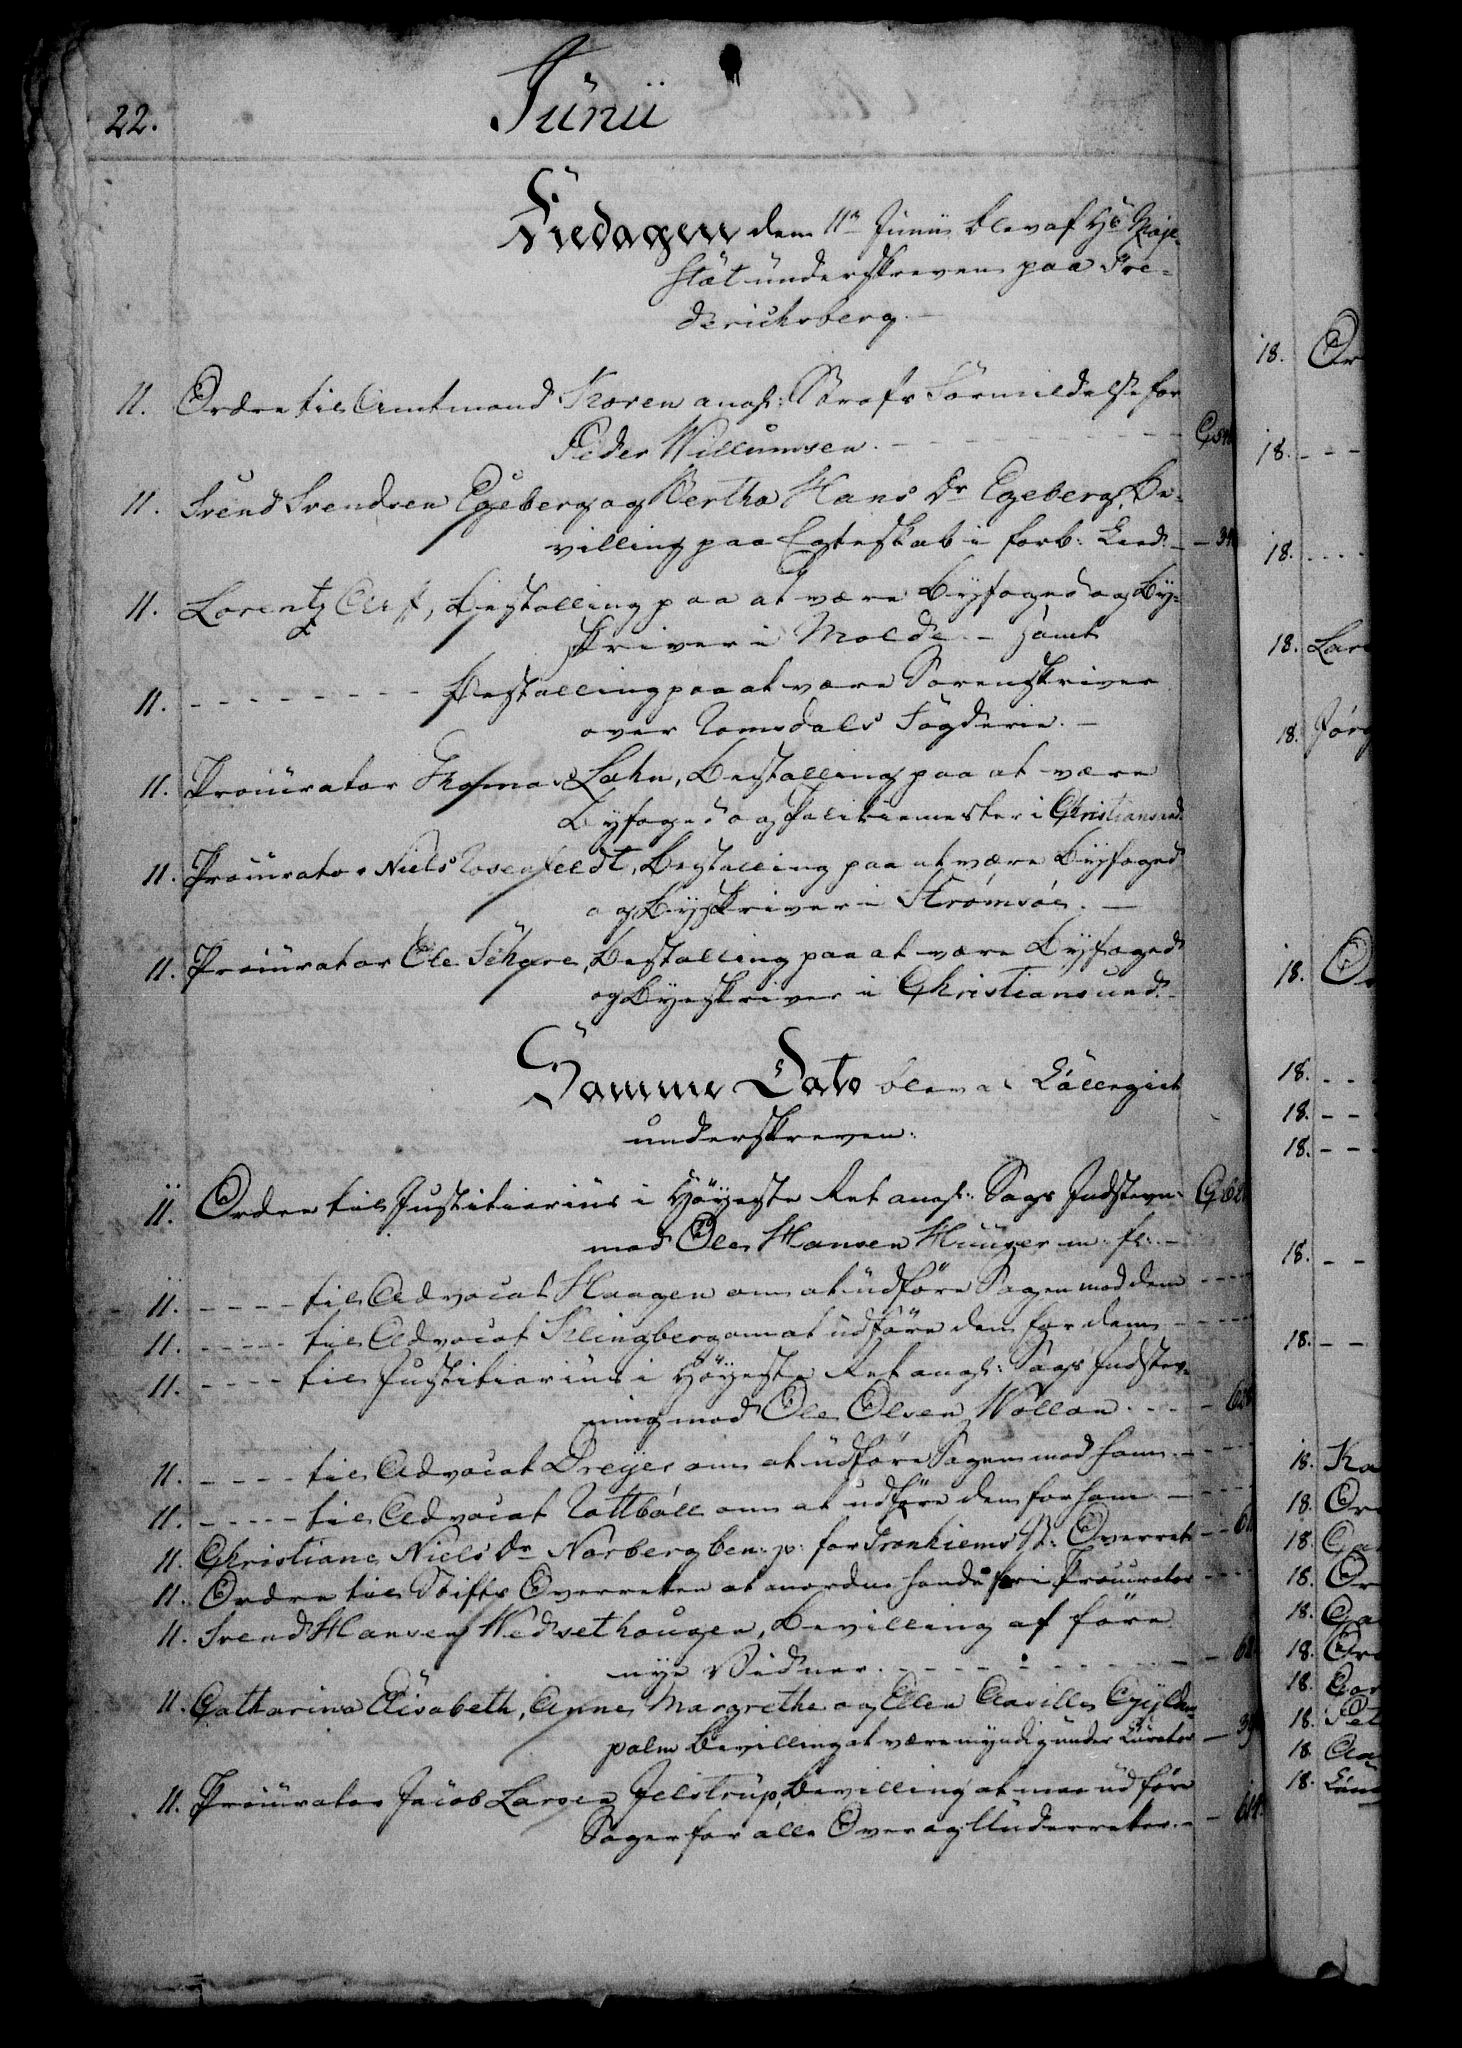 22.
Junii
Fredagen dem 11te Junii blev af Hs Maje-
stæt underskreven paa Fre-
derichsberg.
11. Ordre til Amtmand Koren angl: Strafs Formildelse for
Peder Willumsen.
11. Svend Svendsen Egeberg og Bertha Hans Dr Egeberg, Be-
villing paa Egteskab i forb: Leed.
11. Lorentz , Bestalling paa at være Byfoged og By-
skriver i Molde - samt
11. - - - - Bestalling paa at være Sorenskriver
over Romsdals Fögderie.
11. Procurator Thomas Lahn, Bestalling paa at være
Byfoged og Politiemester i Christiansund
11. Procurator Niels Rosenfeldt, Bestalling paa at være Byfoged
og Byskriver i Strømsöe.
11. Procurator Ole , Bestalling paa at være Byfoged
og Byeskriver i Christiansund.
Samme Dato blev i Collegiet
underskreven:
11. Ordre til Justitiarius i Höyeste Ret angl: Sags Indstevn:
mod Ole Hansen m: fl:
11. - - - - til Advocat Haagen om at udföre Sagen mod dem
11. - - - - til Advocat Klingberg om at udföre den for dem
11. - - - - til Justitiarius i Höyeste Ret angl: Sags Indstev-
ning mod Ole Olsen Wollan
11. - - - - til Advocat Dreyer om at udföre Sagen mod ham
11. - - - - til Advocat Rottböll om at udföre den for ham
11. Christiane Niels Dr Norberg ben: p: for Tronhiems St: Overret
11. Ordre til Stifts Overretten at anordne hende fri Procurator
11. Svend Hansen Wedsethougen, Bevilling at före
nye Vidner.
11. Catharina Elisabeth, Anne Margrethe og Ellen Gylden-
palm Bevilling at være myndig under Curator
11. Procurator Jacob Larsen Jelstrup, Bevilling at maa udföre
Sager for alle Over og Underretter.
18. Or
18. - - -
18. - - -
18.
18.
18.
18. - -
18. - -
18. - -
18. - -
18. - -
18.
18.
18.
18.
18.
18.
18.
18.
18.
18.